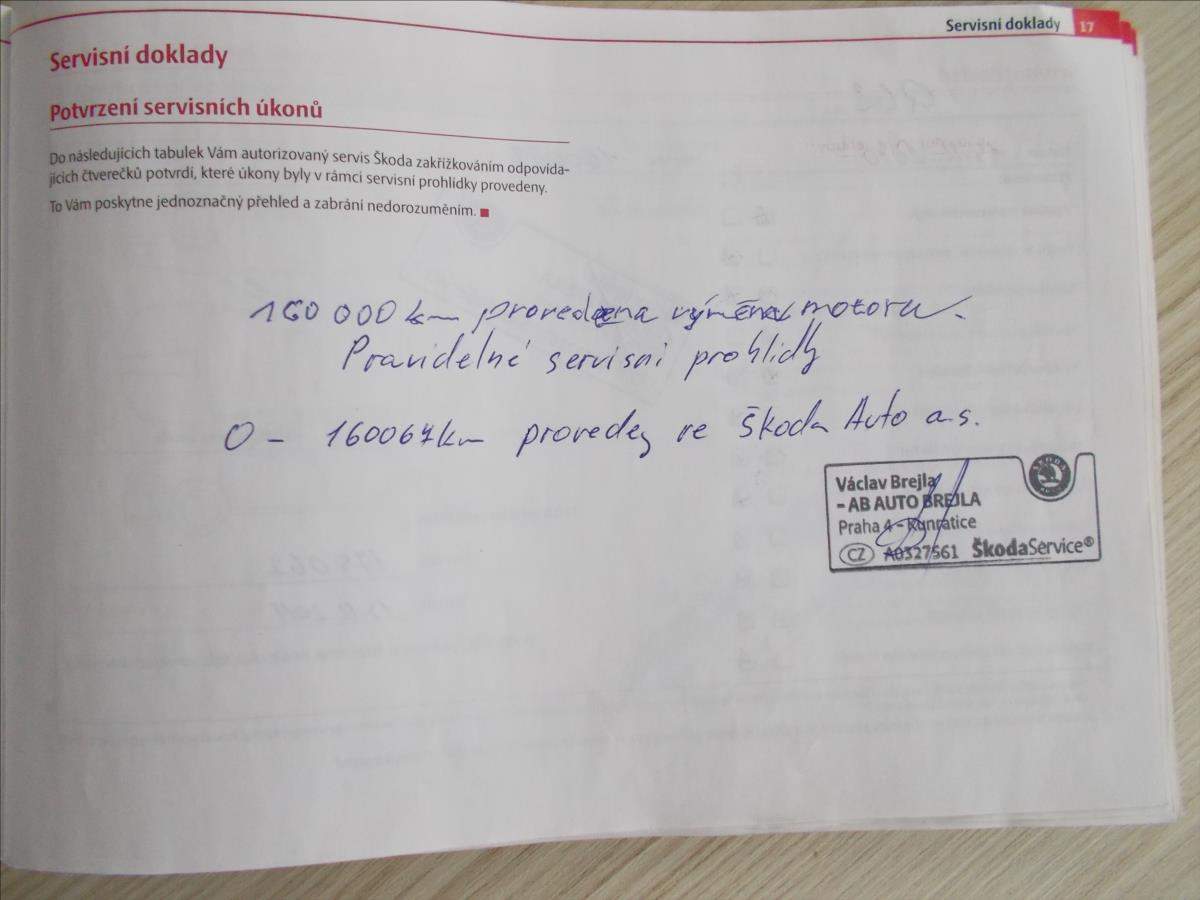 Servisní doklady 17
Servisní doklady
Potvrzení servisních úkonů
Do následujících tabulek Vám autorizovaný servis Škoda zakřížkováním odpovída-
jících čtverečků potvrdí, které úkony byly v rámci servisní prohlídky provedeny.
To Vám poskytne jednoznačný přehled a zabrání nedorozuměním.
160 000 km provedena výměna motoru.
Pravidelné servisní prohlídky
0 - 160067km provedeny ve Škoda Auto a.s.
Václav Brejla
- AB AUTO BREJLA
Praha 4 - Kunratice
CZ A0327561 ŠkodaService®